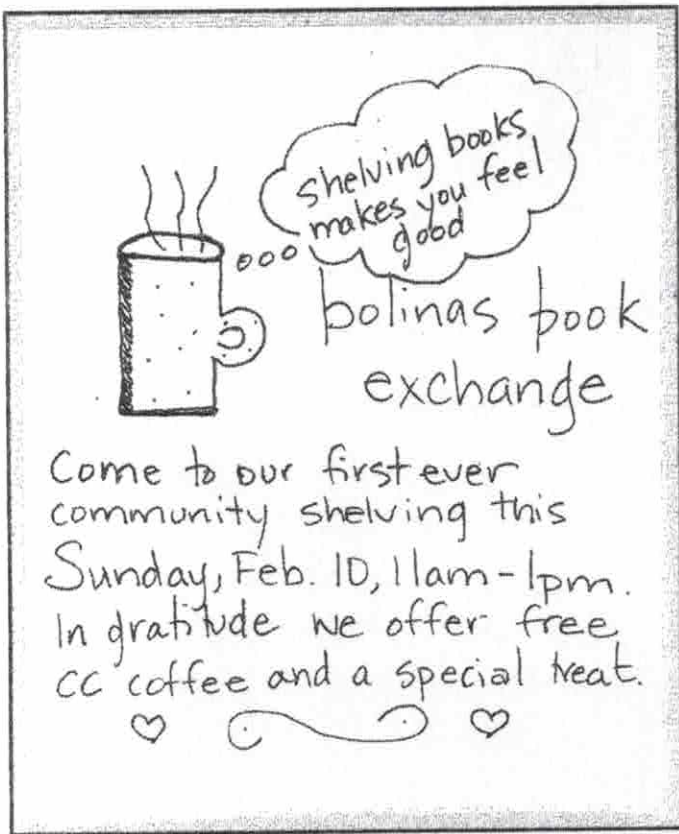 shelving books
makes you feel
good
bolinas book
exchange
Come to our first ever
community shelving this
Sunday, Feb. 10, 11am-1pm.
In gratitude we offer free
CC coffee and a special treat.